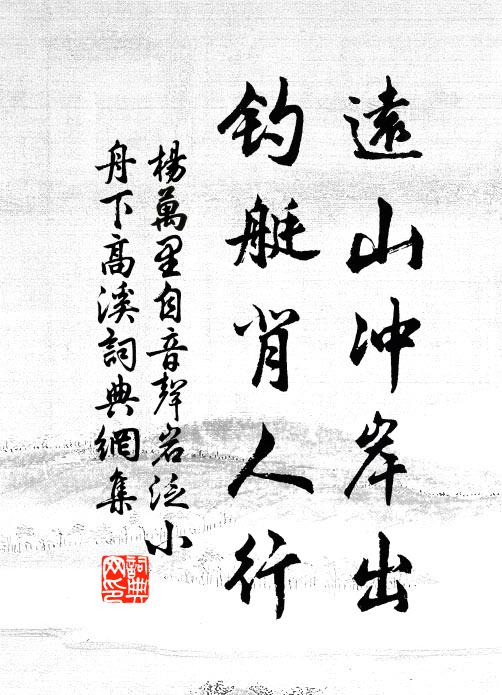 遠山冲岸出
钓艇背人行
楊萬里自音聲岩泛小
舟下高溪詞典網集
詞典
网印